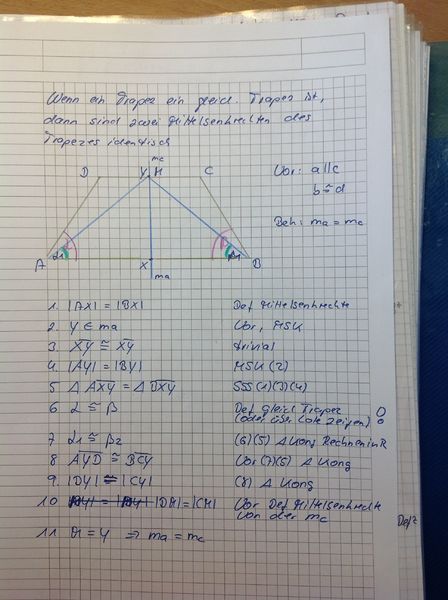 Wenn ein Trapez ein gleich. Trapez ist,
dann sind zwei Mittelsenkrechten des
Trapezes identisch
Vor: a||c
b≅d
Beh: ma = mc
mc
D Y M C
A α1 β1 B
X
ma
1. |AX| = |BX| Def Mittelsenkrechte
2. Y ∈ ma Vor, MSK
3. XY ≅ XY trivial
4. |AY| = |BY| MSK (2)
5 Δ AXY = Δ BXY SSS (1)(3)(4)
6 α ≅ β Def gleich Trapez
(oder über Lote zeigen)
7 α2 ≅ β2 (6)(5) Δ Kong Rechnen in R
8 AYD ≅ BCY Vor (7)(5) Δ Kong
9. |DY| ≅ |CY| (8) Δ Kong
10 |DM| = |CM| Vor Def Mittelsenkrechte
von der mc
11 M = Y ⇒ ma = mc